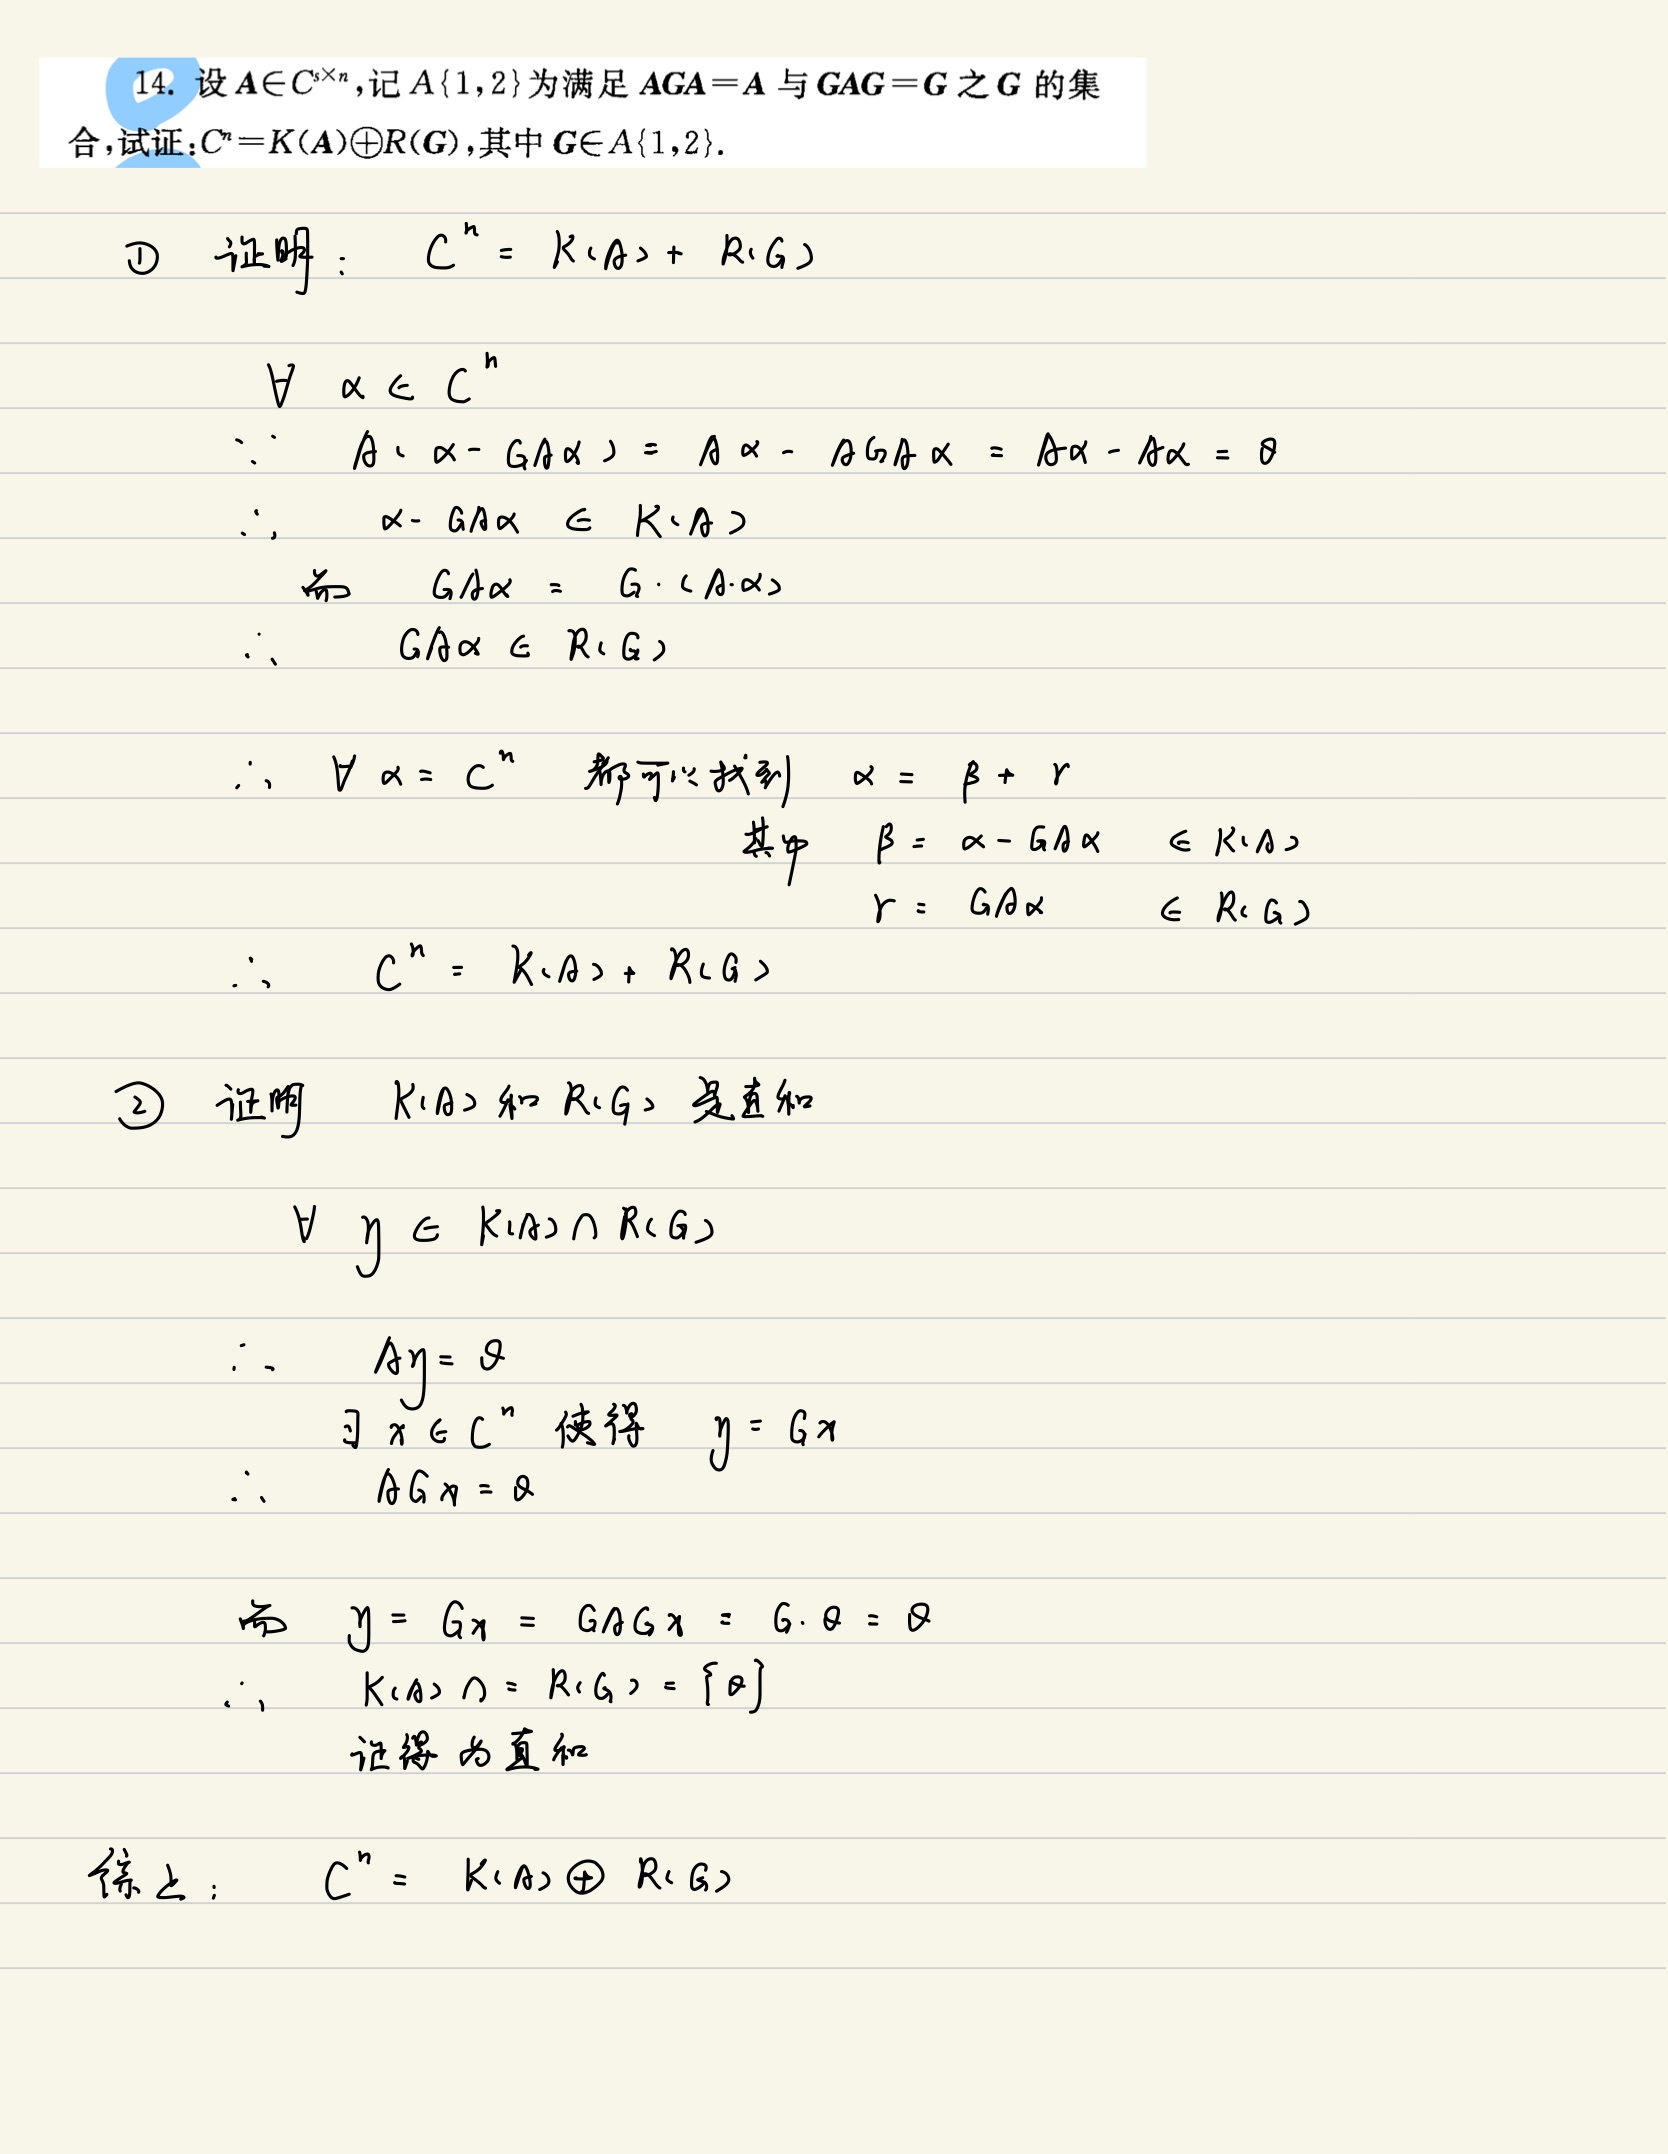 14. 设 A∈C^{s×n},记 A{1,2}为满足 AGA=A 与 GAG=G 之 G 的集
合,试证:C^n=K(A)⊕R(G),其中 G∈A{1,2}.
① 证明: C^n = K(A) + R(G)
∀ α ∈ C^n
∵ A(α - GAα) = Aα - AGAα = Aα - Aα = θ
∴ α - GAα ∈ K(A)
而 GAα = G·(A·α)
∴ GAα ∈ R(G)
∴ ∀ α = C^n 都可以找到 α = β + r
其中 β = α - GAα ∈ K(A)
r = GAα ∈ R(G)
∴ C^n = K(A) + R(G)
② 证明 K(A) 和 R(G) 是直和
∀ η ∈ K(A) ∩ R(G)
∴ Aη = θ
∃ x ∈ C^n 使得 η = Gx
∴ AGx = θ
而 η = Gx = GAGx = G·θ = θ
∴ K(A) ∩ = R(G) = {θ}
证得为直和
综上: C^n = K(A) ⊕ R(G)